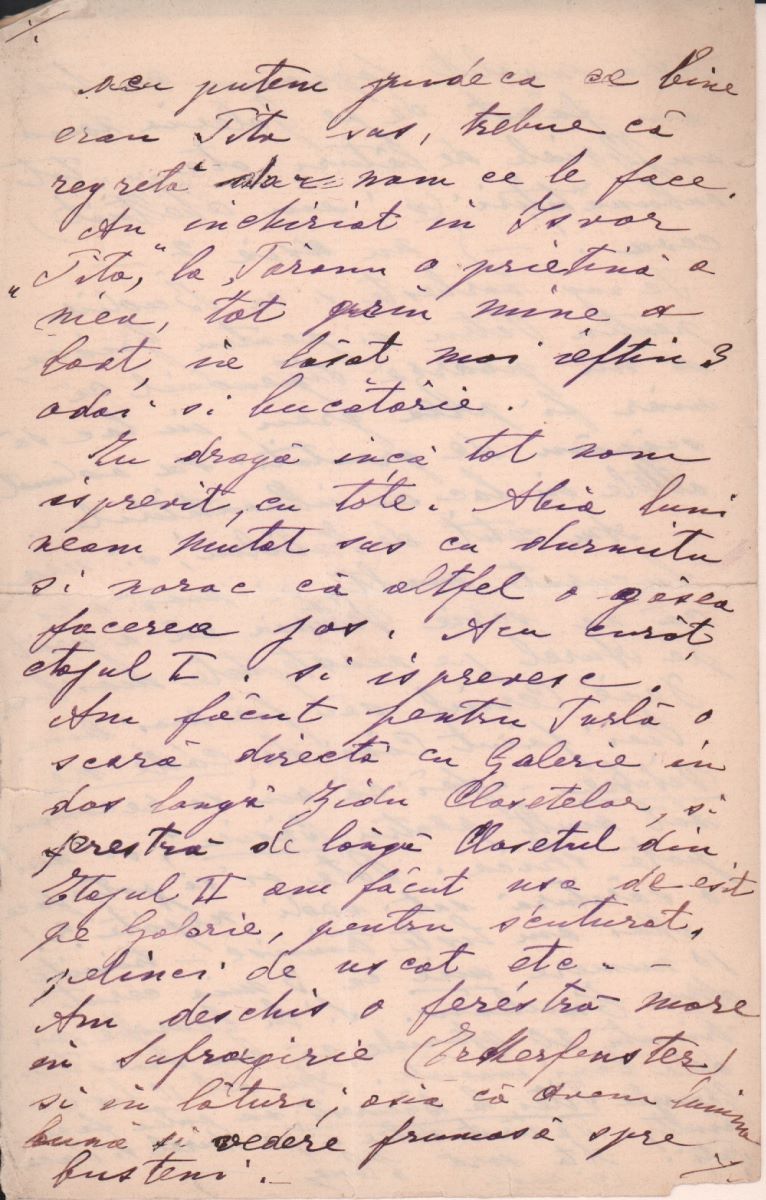 acu putem judeca ce bine
erau Tita sus, trebue că
regretă dar nam ce le face.
Au inchiriat in Isvor
"Tita," la Țăranu o prietină a
mea, tot prin mine a
loat, ia lăsat mai eftin 3
odăi si bucătărie.
Eu dragă incă tot nam
isprevit, cu tóte. Abia luni
neam mutat sus cu durmitu
si noroc că altfel o găsea
facerea jos. Acu curăt
etajul II. si isprevesc.
Am făcut pentru Turlă o
scară directă cu Galerie in
dos langă Zidu Closetelor, si
frestră de lângă Closetul din
Etajul II am făcut usa de esit
pe Galerie, pentru scuturat,
pelinci de uscat etc. - -
Am deschis o feréstră mare
in Sufragirie (Erkerfenster)
si in lături, asia că avem lumina
bună si vedere frumosă spre
busteni. -